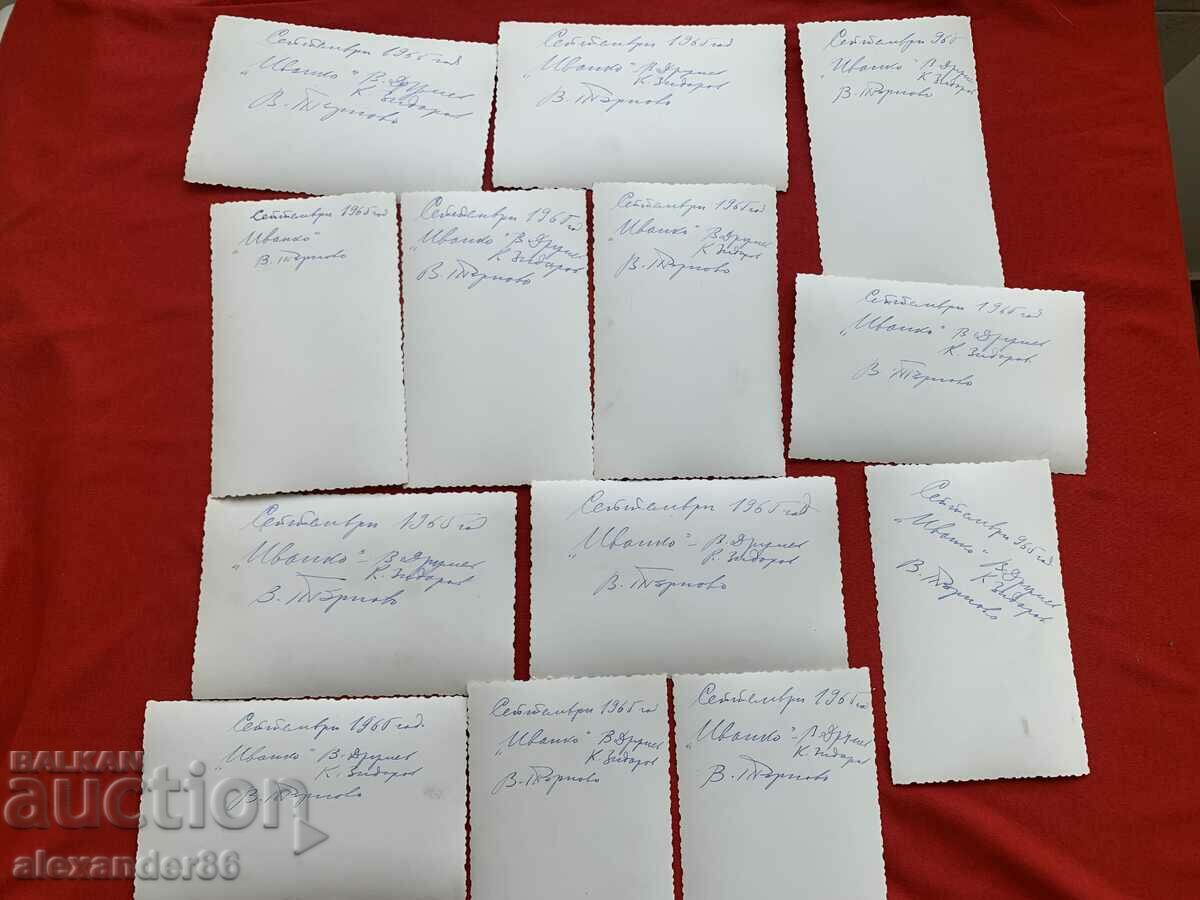 Септември 1965 год
"Иванко" В. Друмев
К. Зидаров
В. Търново
Септември 1965 год
"Иванко" - В. Друмев
К. Зидаров
В. Търново
Септември 965
"Иванко" В. Друмев
К. Зидаров
В. Търново
Септември 1965 год
"Иванко"
В. Търново
Септември 1965 год
"Иванко" В. Друмев
К. Зидаров
В. Търново
Септември 1965 год
"Иванко" В. Друмев
К. Зидаров
В. Търново
Септември 1965 год
"Иванко" В. Друмев
К. Зидаров
В. Търново
Септември 1965 год
"Иванко" - В. Друмев
К. Зидаров
В. Търново
Септември 1965 год.
"Иванко" - В. Друмев
К. Зидаров
В. Търново
Септември 965 год
"Иванко" В. Друмев
К. Зидаров
В. Търново
Септември 1965 год.
"Иванко" В. Друмев
К. Зидаров
В. Търново
Септември 1965 год
"Иванко" В. Друмев
К. Зидаров
В. Търново
Септември 1965 год
"Иванко" - В. Друмев
К. Зидаров
В. Търново
BALKAN
auction
alexander86